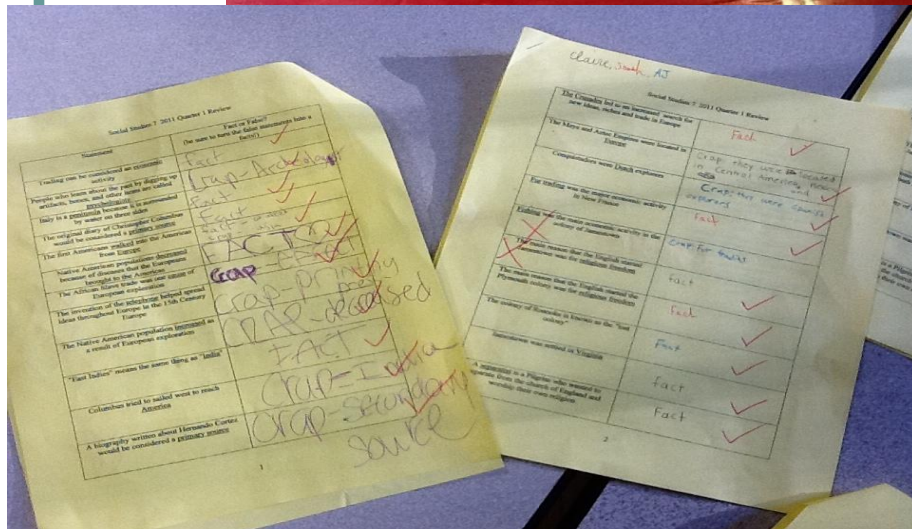 Social Studies 7: 2011 Quarter 1 Review
Statement
Fact or False?
(be sure to turn the false statements into a fact!)
Trading can be considered an economic
activity
fact
People who learn about the past by digging up
artifacts, bones, and other items are called
psychologists
Crap-Archeologist
Italy is a peninsula because it is surrounded
by water on three sides
fact
The original diary of Christopher Columbus
would be considered a primary source
Fact
The first Americans walked into the Americas
from Europe
Native American populations decreased
because of diseases that the Europeans
brought to the Americas
FACT
The African Slave trade was one reason of
European exploration
Crap
The invention of the telephone helped spread
ideas throughout Europe in the 15th Century
Europe
crap-printing
press
The Native American population increased as
a result of European exploration
CRAP-decreased
"East Indies" means the same thing as "India"
FACT
Columbus tried to sailed west to reach
America
Crap-India
A biography written about Hernando Cortes
would be considered a primary source
Crap-Secondary
source
1
Claire, Sarah, AJ
Social Studies 7: 2011 Quarter 1 Review
The Crusades led to an increased search for
new ideas, riches and trade in Europe
Fact
The Maya and Aztec Empires were located in
Europe
Crap, they were located
in Central America,
and
Conquistadors were Dutch explorers
Crap-They were Spanish
explorers
Fur trading was the main economic activity
in New France
Fact
Fishing was the main economic activity in the
colony of Jamestown
Crap
The main reason that the English started
Jamestown was for religious freedom
fact
The main reason that the English started the
Plymouth colony was for religious freedom
Fact
The colony of Roanoke is known as the "lost
colony"
Fact
Jamestown was settled in Virginia
fact
A separatist is a Pilgrim who wanted to
separate from the church of England and
worship their own religion
Fact
2